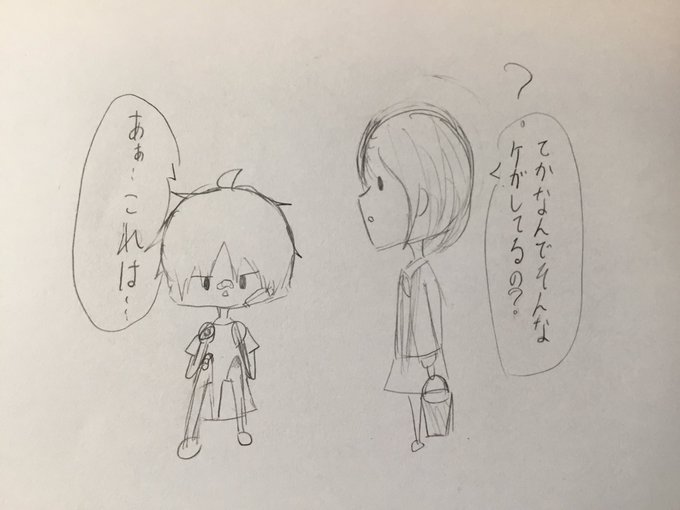 てかなんでそんな
ケガしてるの?。
?
あぁ~これは~~